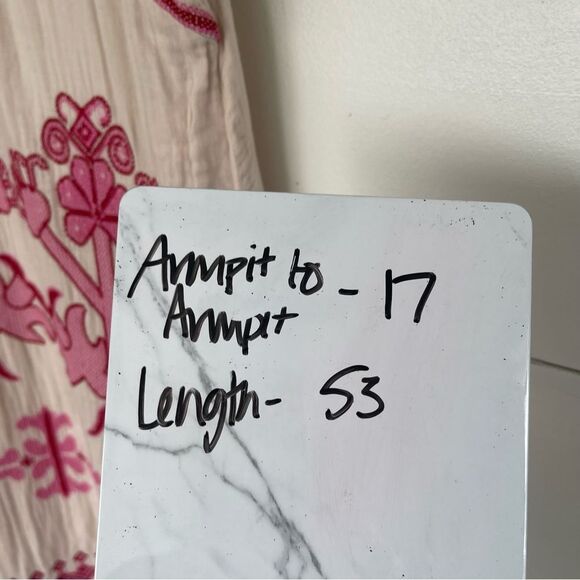 Armpit to
Armpit - 17
Length - 53